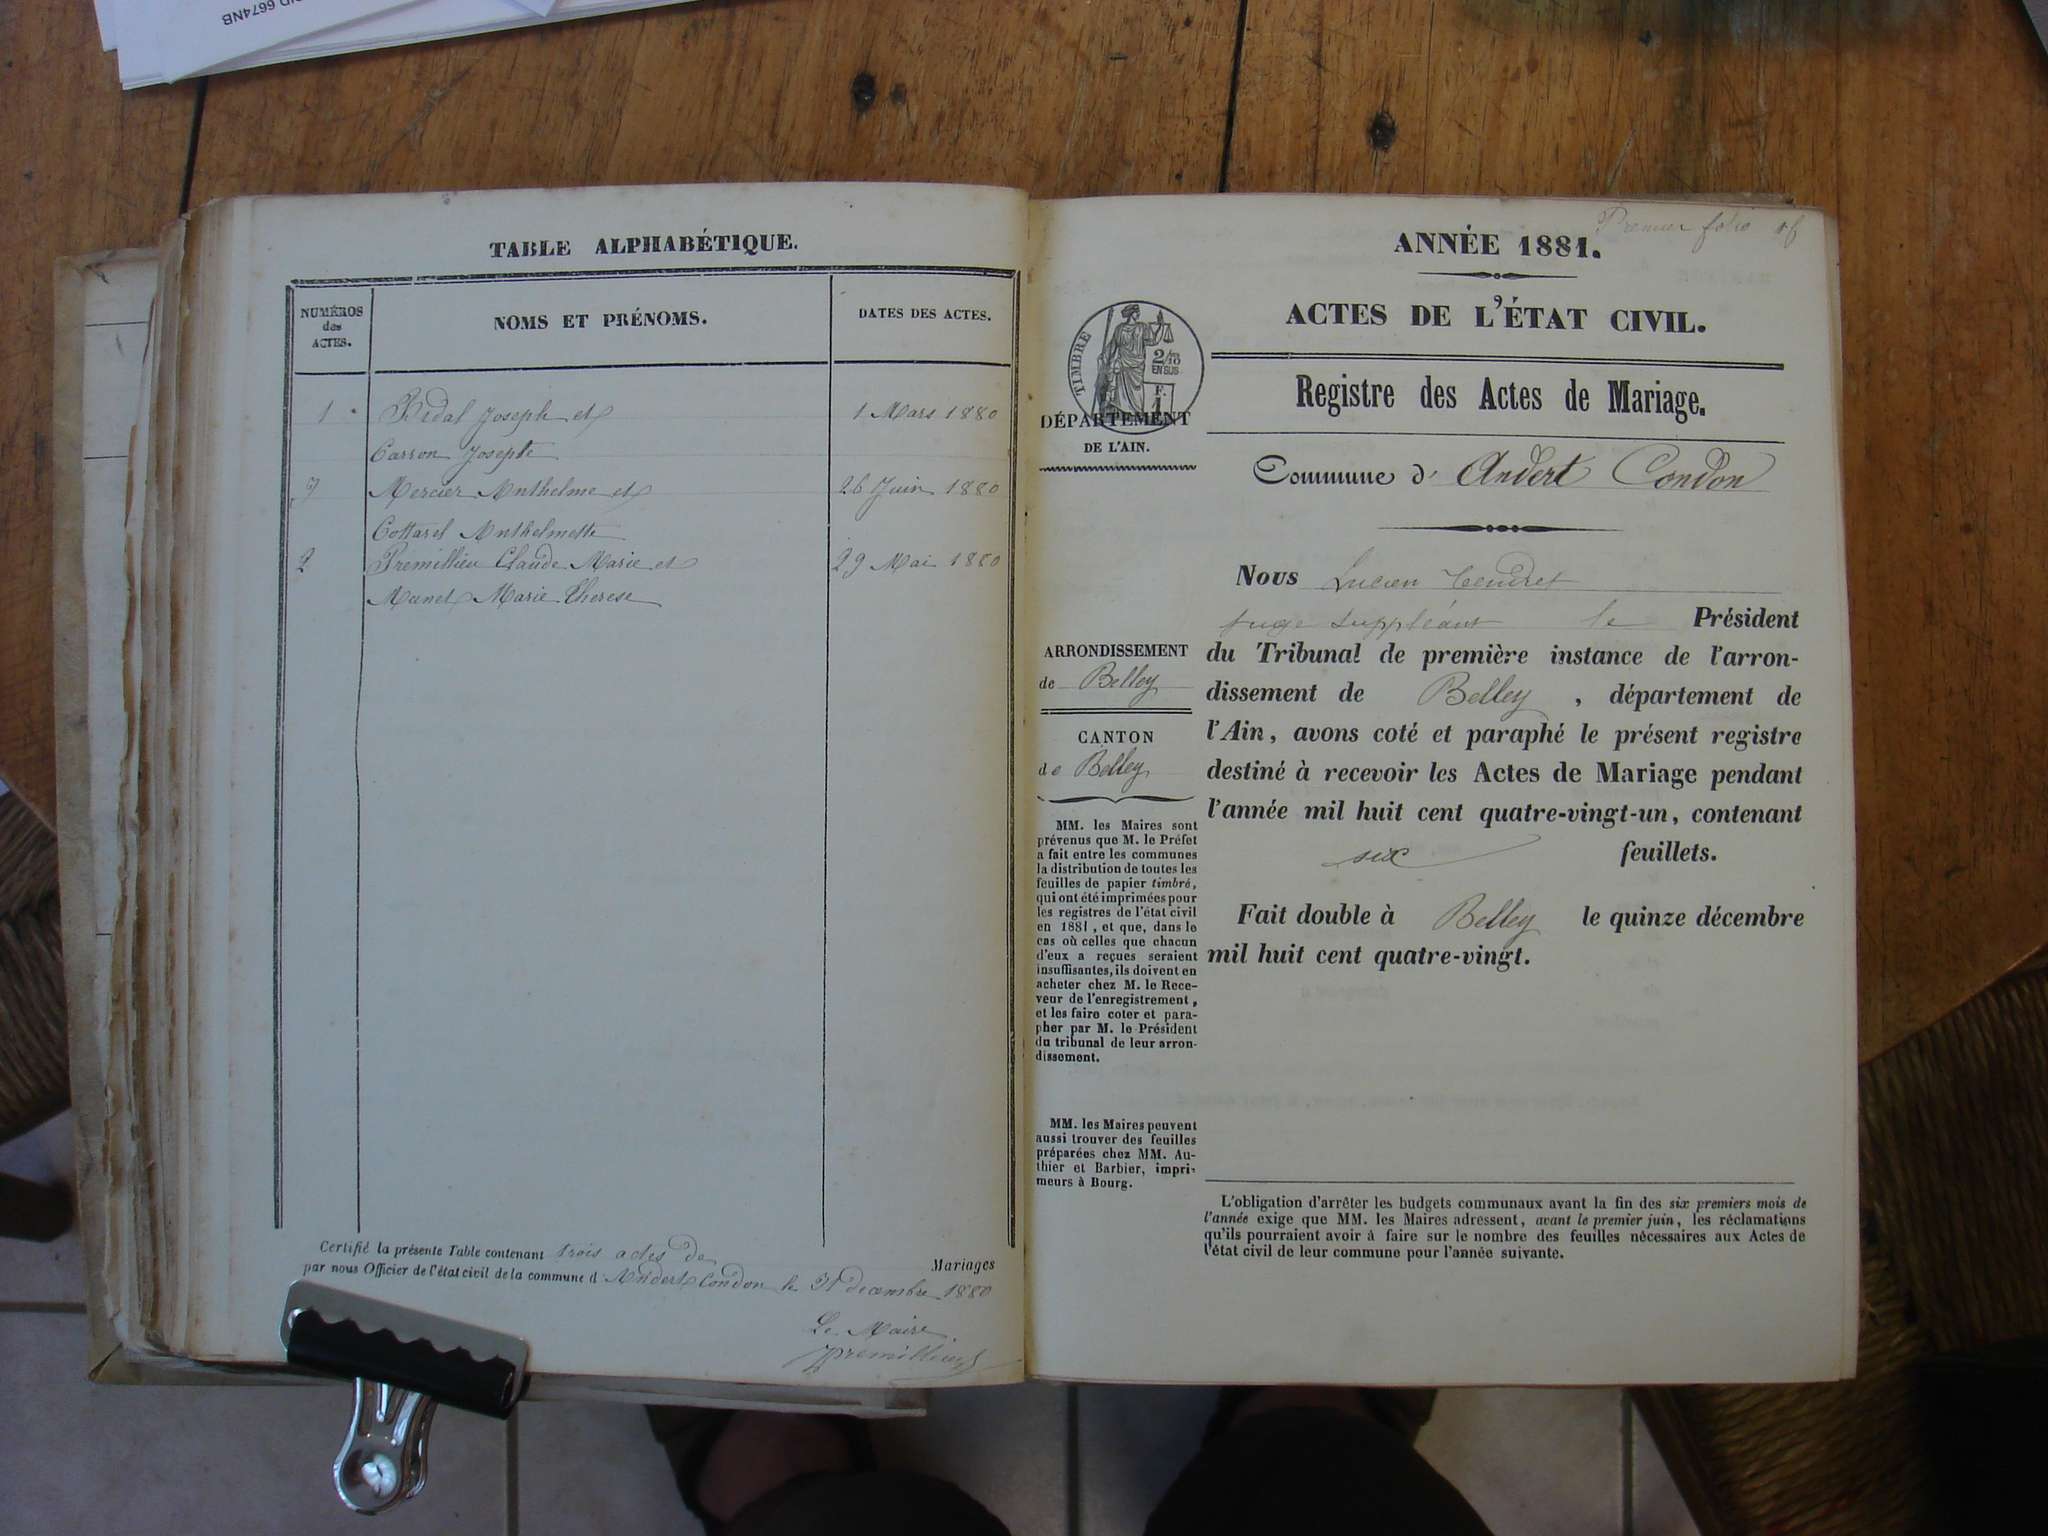 6674NB
TABLE ALPHABÉTIQUE.
NUMÉROS
des
ACTES.
NOMS ET PRÉNOMS.
DATES DES ACTES.
1 Bidal Joseph et 1 Mars 1880
Carron Josephte
3 Mercier Anthelme et 26 Juin 1880
Cottarel Anthelmette
2 Premillieu Claude Marie et 29 Mai 1880
Marie Therese
Certifié la présente Table contenant trois actes de Mariages
par nous Officier de l'état civil de la commune d'Andert Condon le 31 decembre 1880
Le Maire
Premillieu
Premier folio
ANNÉE 1881.
ACTES DE L'ÉTAT CIVIL.
TIMBRE
2/10
EN SUS
F.
1
DÉPARTEMENT
DE L'AIN.
Registre des Actes de Mariage.
Commune d' Andert Condon
Nous Lucien Tendret
juge suppléant le Président
du Tribunal de première instance de l'arron-
dissement de Belley, département de
l'Ain, avons coté et paraphé le présent registre
destiné à recevoir les Actes de Mariage pendant
l'année mil huit cent quatre-vingt-un, contenant
six feuillets.
Fait double à Belley le quinze décembre
mil huit cent quatre-vingt.
ARRONDISSEMENT
de Belley
CANTON
de Belley
MM. les Maires sont
prévenus que M. le Préfet
a fait entre les communes
la distribution de toutes les
feuilles de papier timbré,
qui ont été imprimées pour
les registres de l'état civil
en 1881, et que, dans le
cas où celles que chacun
d'eux a reçues seraient
insuffisantes, ils doivent en
acheter chez M. le Rece-
veur de l'enregistrement,
et les faire coter et para-
pher par M. le Président
du tribunal de leur arron-
dissement.
MM. les Maires peuvent
aussi trouver des feuilles
préparées chez MM. Au-
thier et Barbier, impri-
meurs à Bourg.
L'obligation d'arrêter les budgets communaux avant la fin des six premiers mois de
l'année exige que MM. les Maires adressent, avant le premier juin, les réclamations
qu'ils pourraient avoir à faire sur le nombre des feuilles nécessaires aux Actes de
l'état civil de leur commune pour l'année suivante.